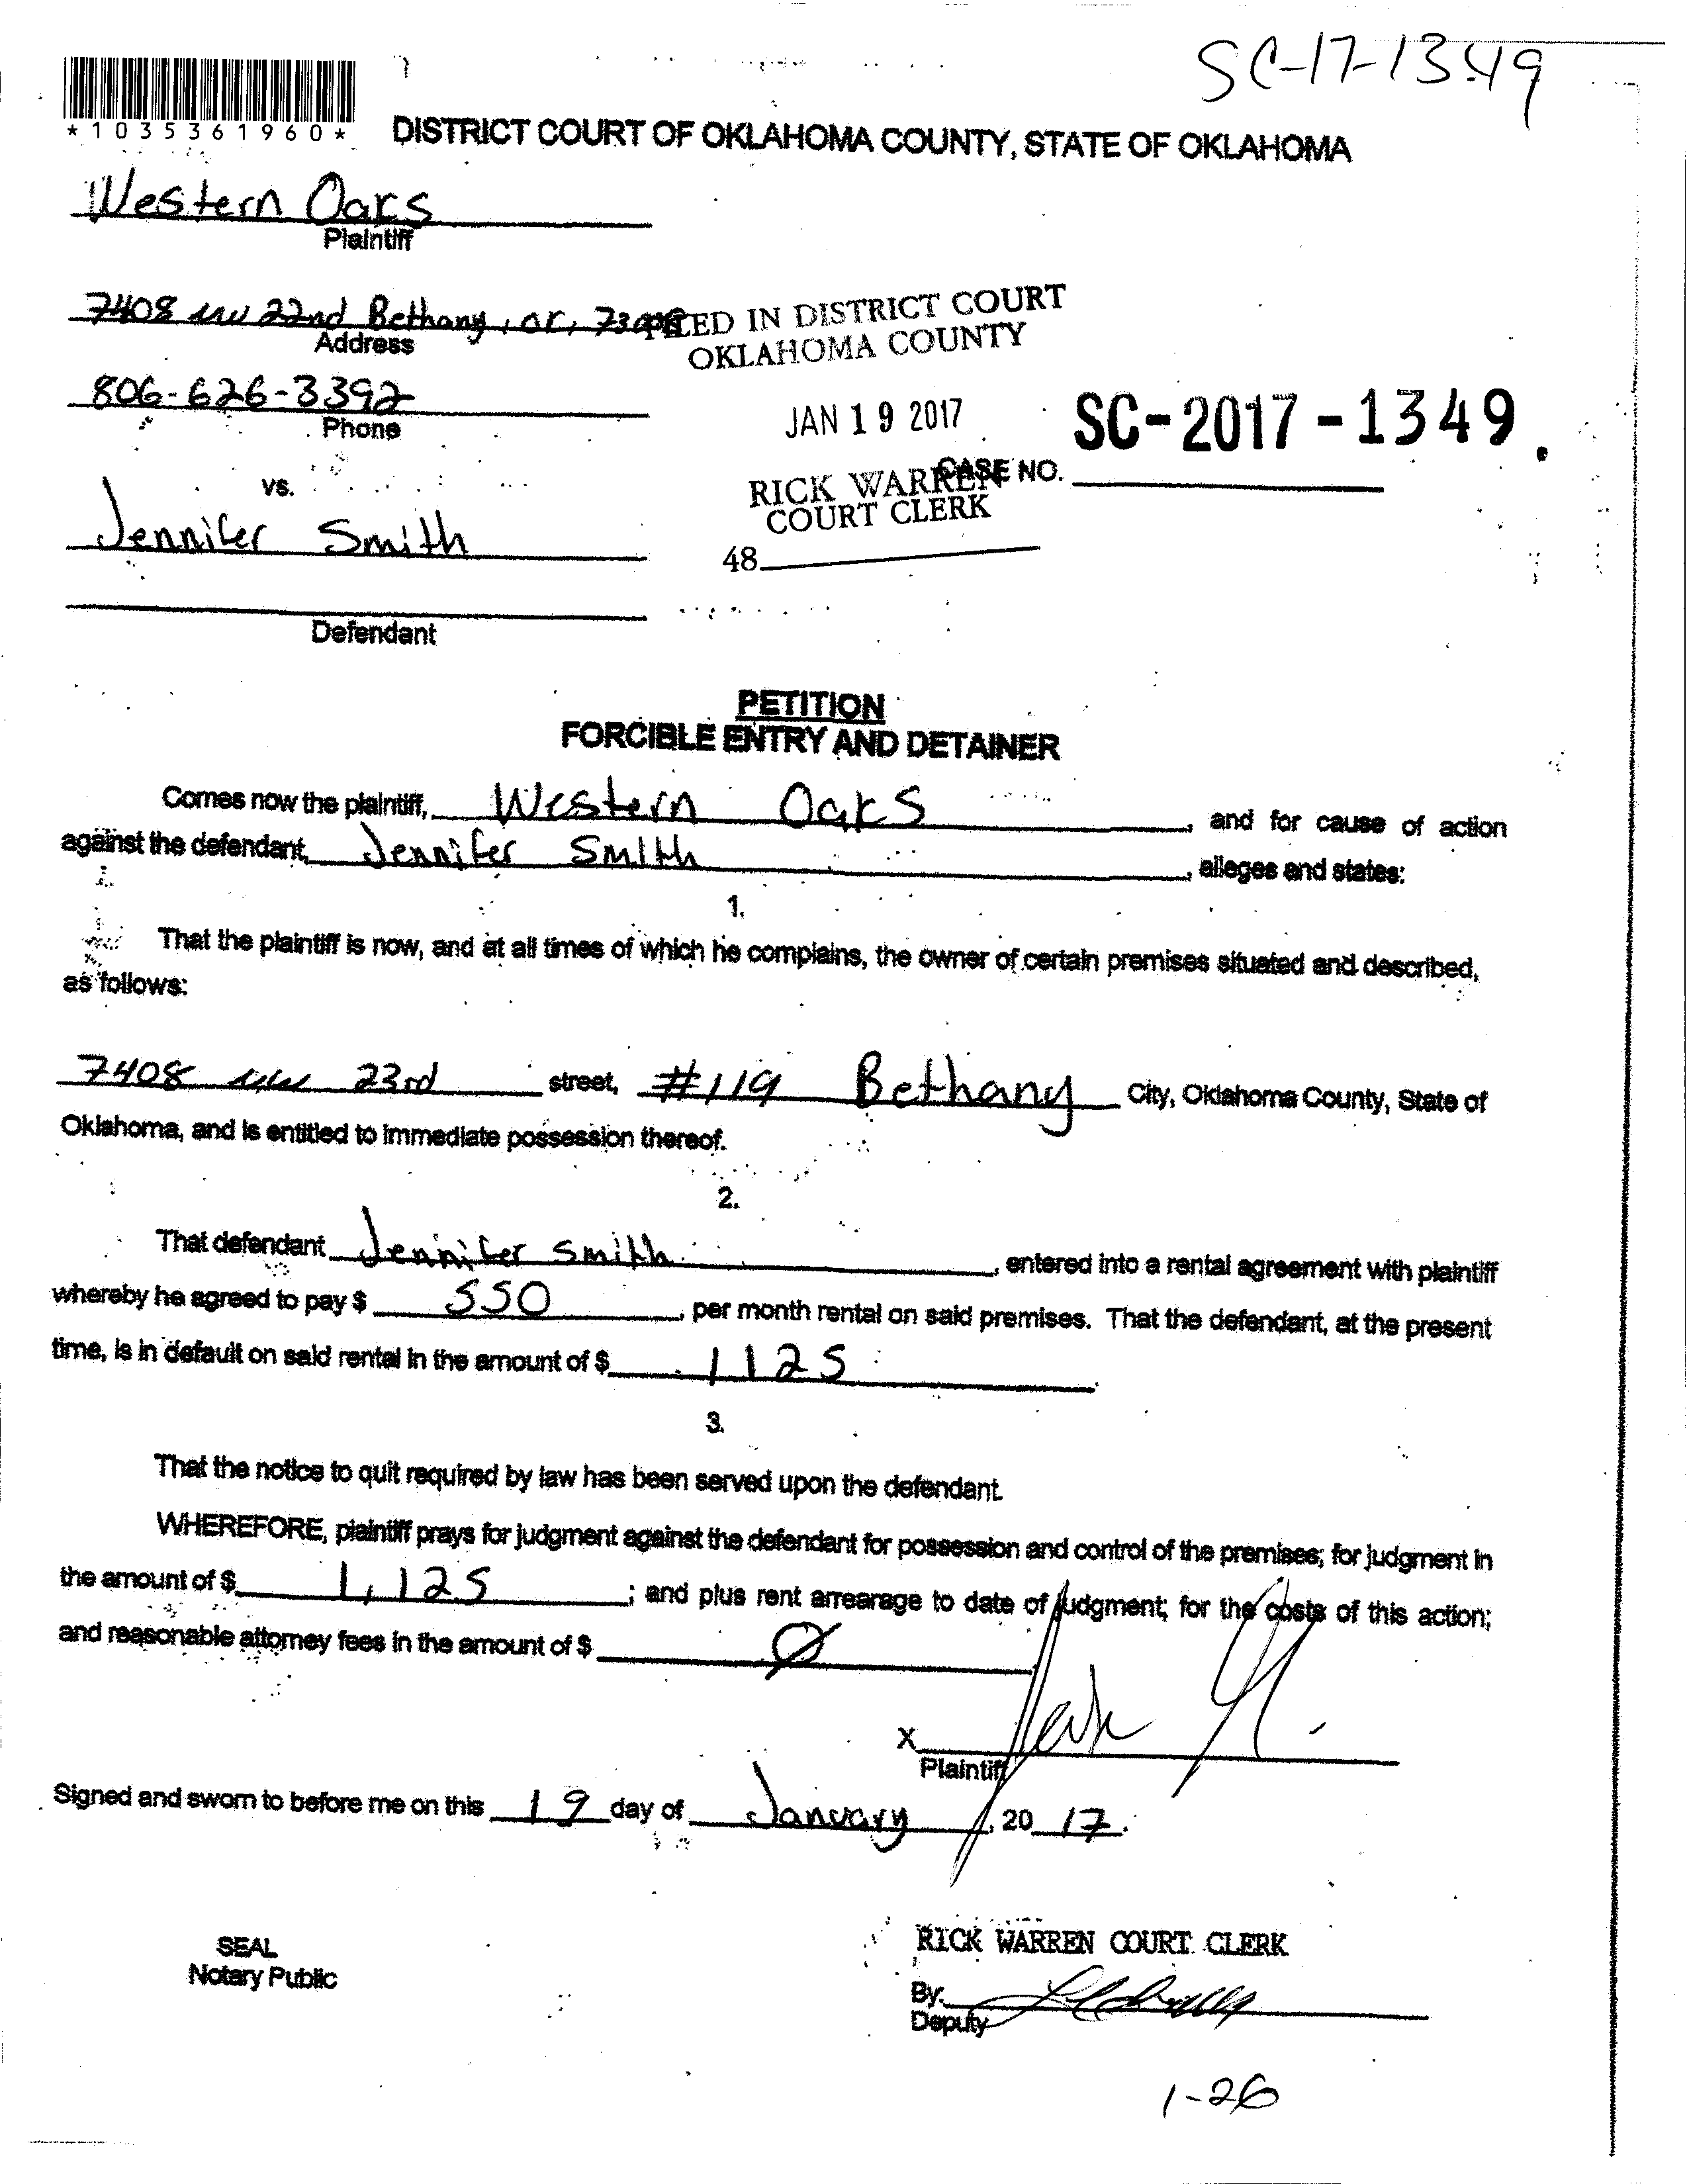 SC-17-1349
*1035361960*
DISTRICT COURT OF OKLAHOMA COUNTY, STATE OF OKLAHOMA
Western Oaks
Plaintiff
7408 NW 22nd Bethany, OK,
Address
FILED IN DISTRICT COURT
OKLAHOMA COUNTY
806-626-3392
Phone
JAN 19 2017
SC-2017-1349
CASE NO.
RICK WARREN
COURT CLERK
48
vs.
Jennifer Smith
Defendant
PETITION
FORCIBLE ENTRY AND DETAINER
Comes now the plaintiff, Western Oaks, and for cause of action
against the defendant, Jennifer Smith, alleges and states:
1.
That the plaintiff is now, and at all times of which he complains, the owner of certain premises situated and described,
as follows:
7408 NW 23rd street, #119 Bethany City, Oklahoma County, State of
Oklahoma, and is entitled to immediate possession thereof.
2.
That defendant Jennifer Smith, entered into a rental agreement with plaintiff
whereby he agreed to pay $ 550, per month rental on said premises. That the defendant, at the present
time, is in default on said rental in the amount of $ 1125.
3.
That the notice to quit required by law has been served upon the defendant.
WHEREFORE, plaintiff prays for judgment against the defendant for possession and control of the premises; for judgment in
the amount of $ 1,125; and plus rent arrearage to date of judgment; for the costs of this action;
and reasonable attorney fees in the amount of $ Ø
X
Plaintiff
Signed and sworn to before me on this 19 day of January, 20 17.
SEAL
Notary Public
RICK WARREN COURT CLERK
By:
Deputy
1-26